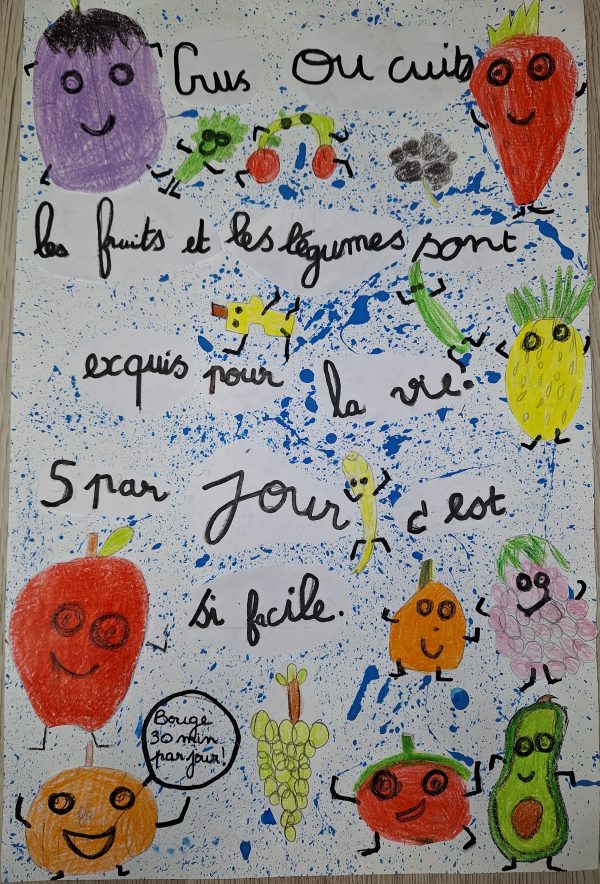 Crus ou cuits
les fruits et les légumes sont
exquis pour la vie.
5 par jour c'est
si facile.
Bouge
30 min
par jour!